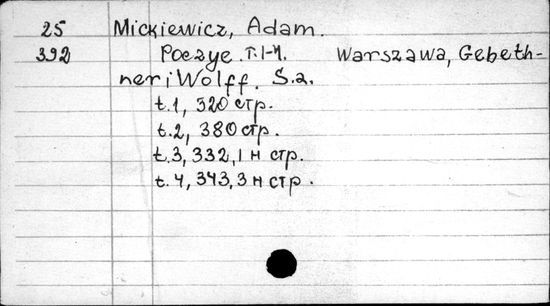 25 Mickiewicz, Adam.
392 Poezye. T.1-4. Warszawa, Gebeth-
ner i Wolff. S.a.
t.1, 320 стр.
t.2, 380 стр.
t.3, 332, 1 н стр.
t.4, 343, 3 н стр.